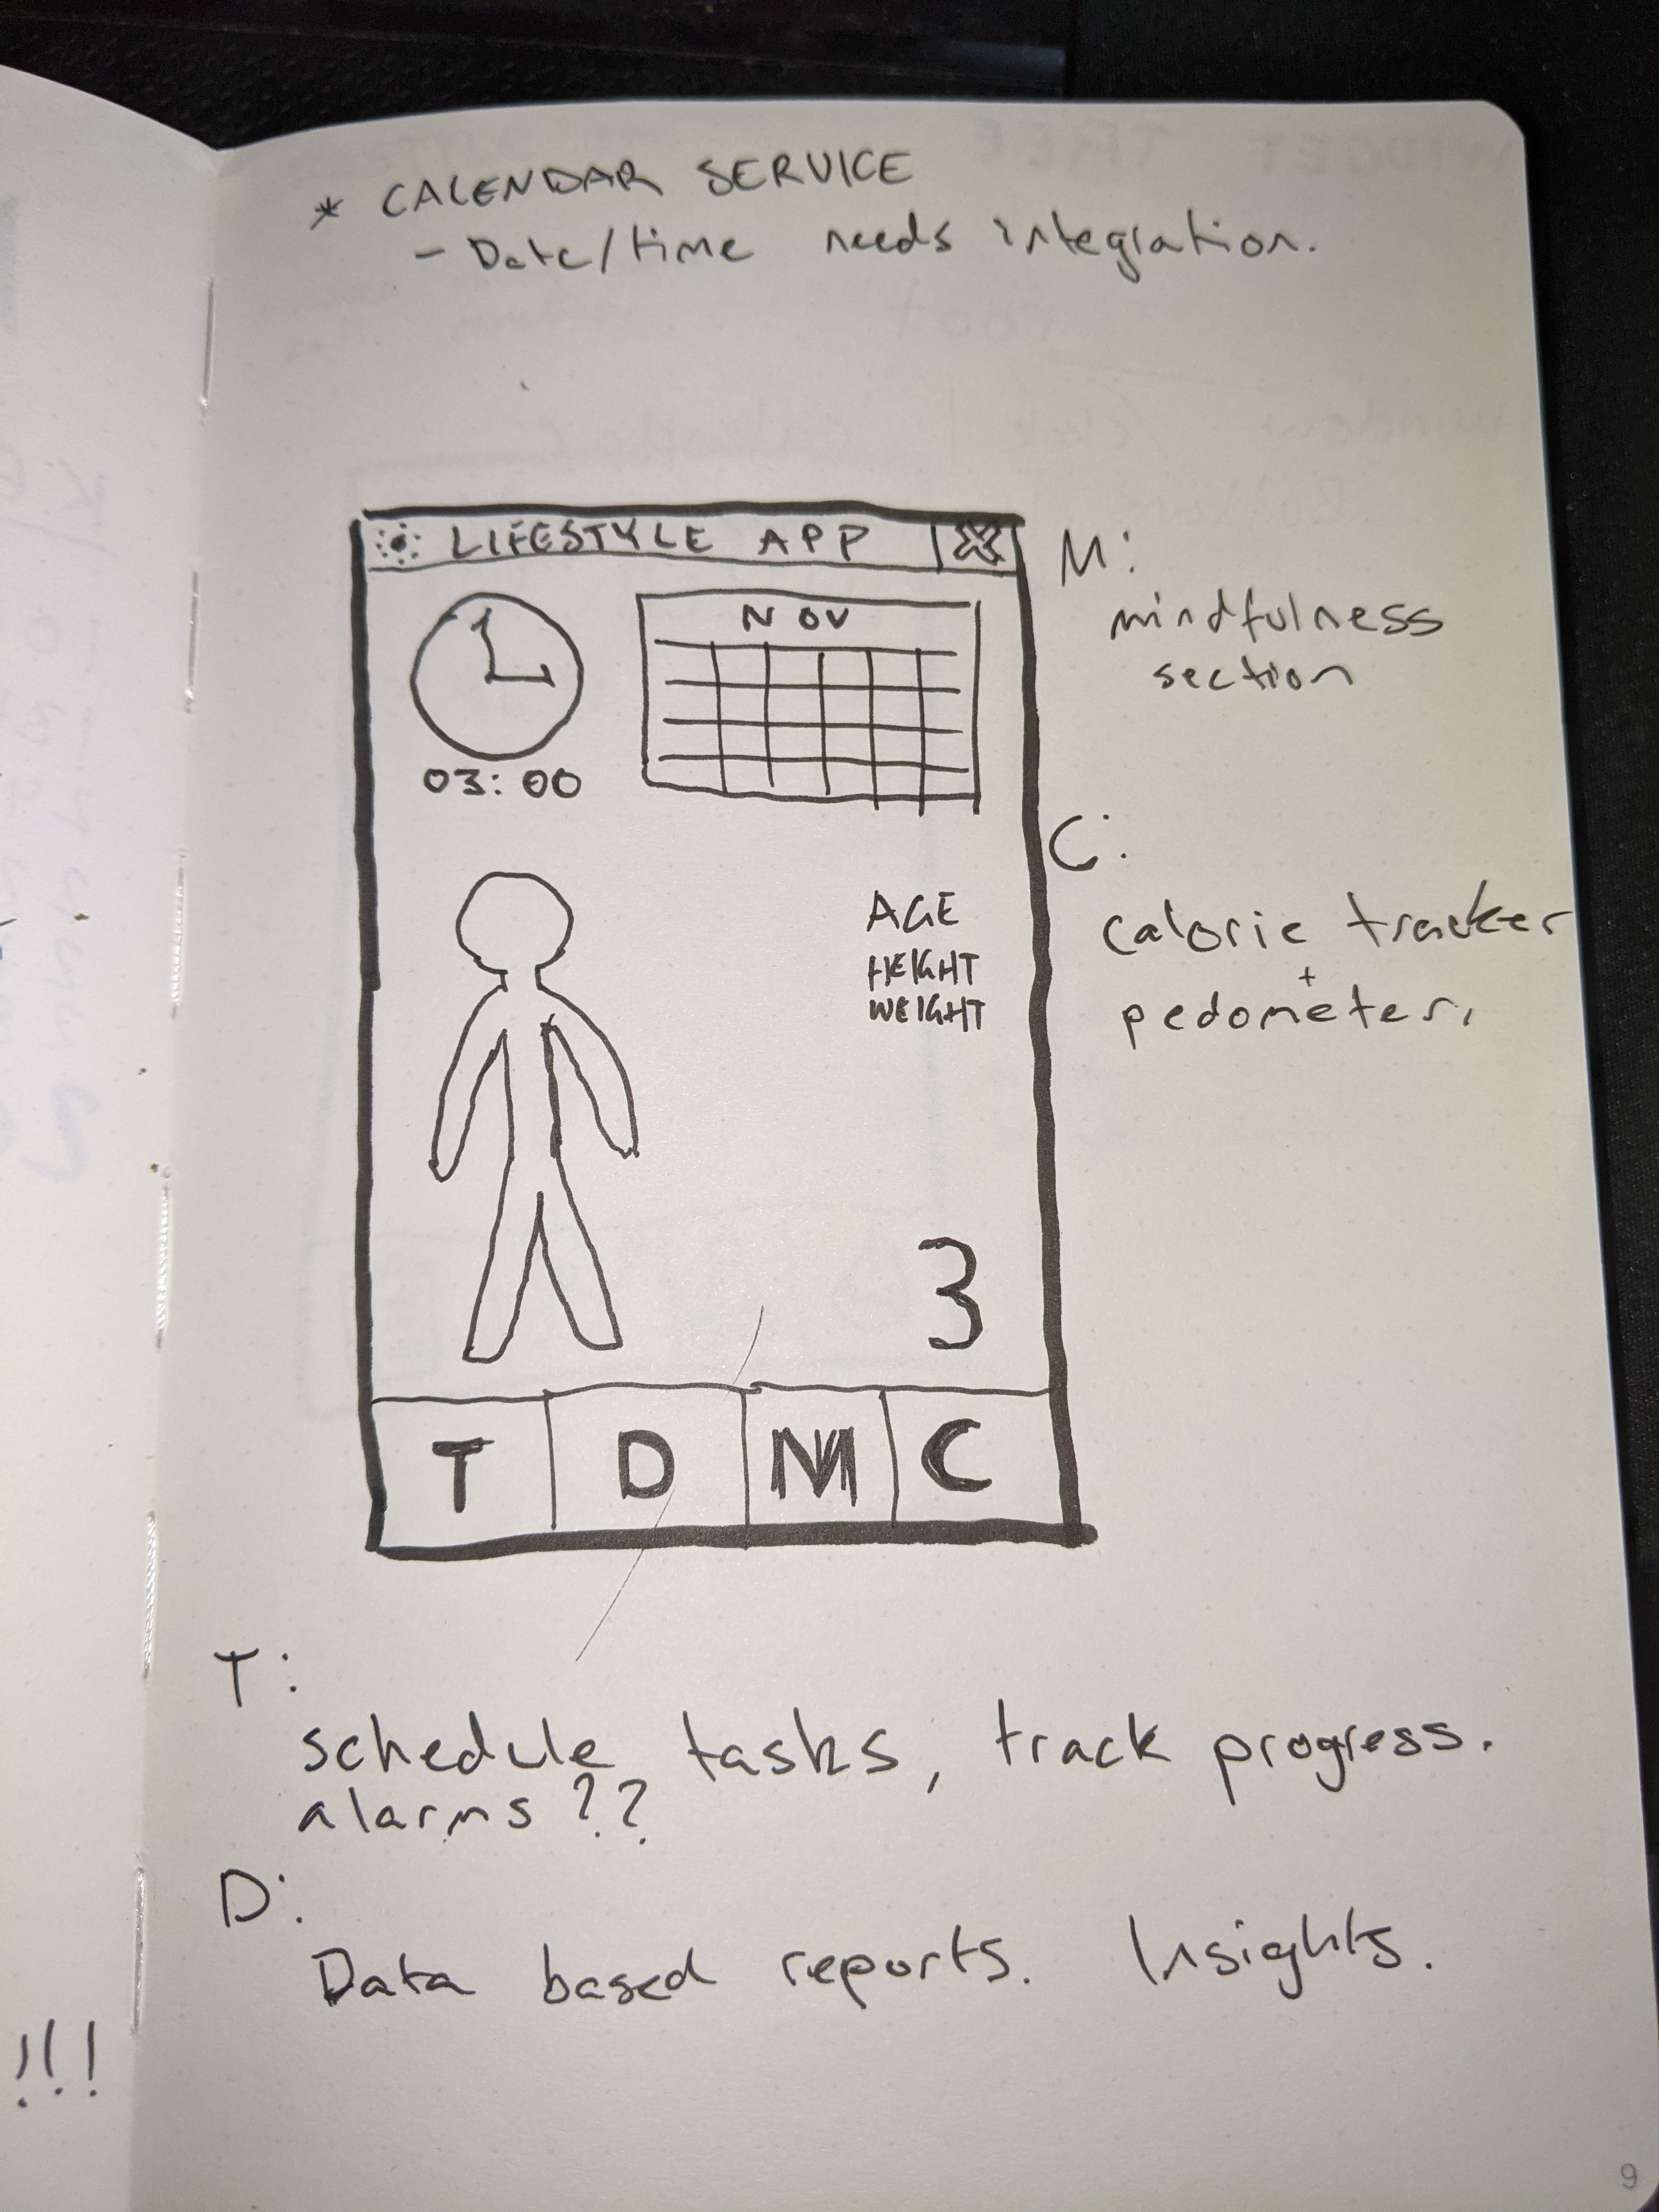 * CALENDAR SERVICE
- Date/time needs integration.
LIFESTYLE APP X
NOV
03:00
AGE
HEIGHT
WEIGHT
3
T D M C
M:
mindfulness
section
C:
calorie tracker
+
pedometer.
T:
schedule tasks, track progress.
alarms??
D:
Data based reports. Insights.
!!!
9